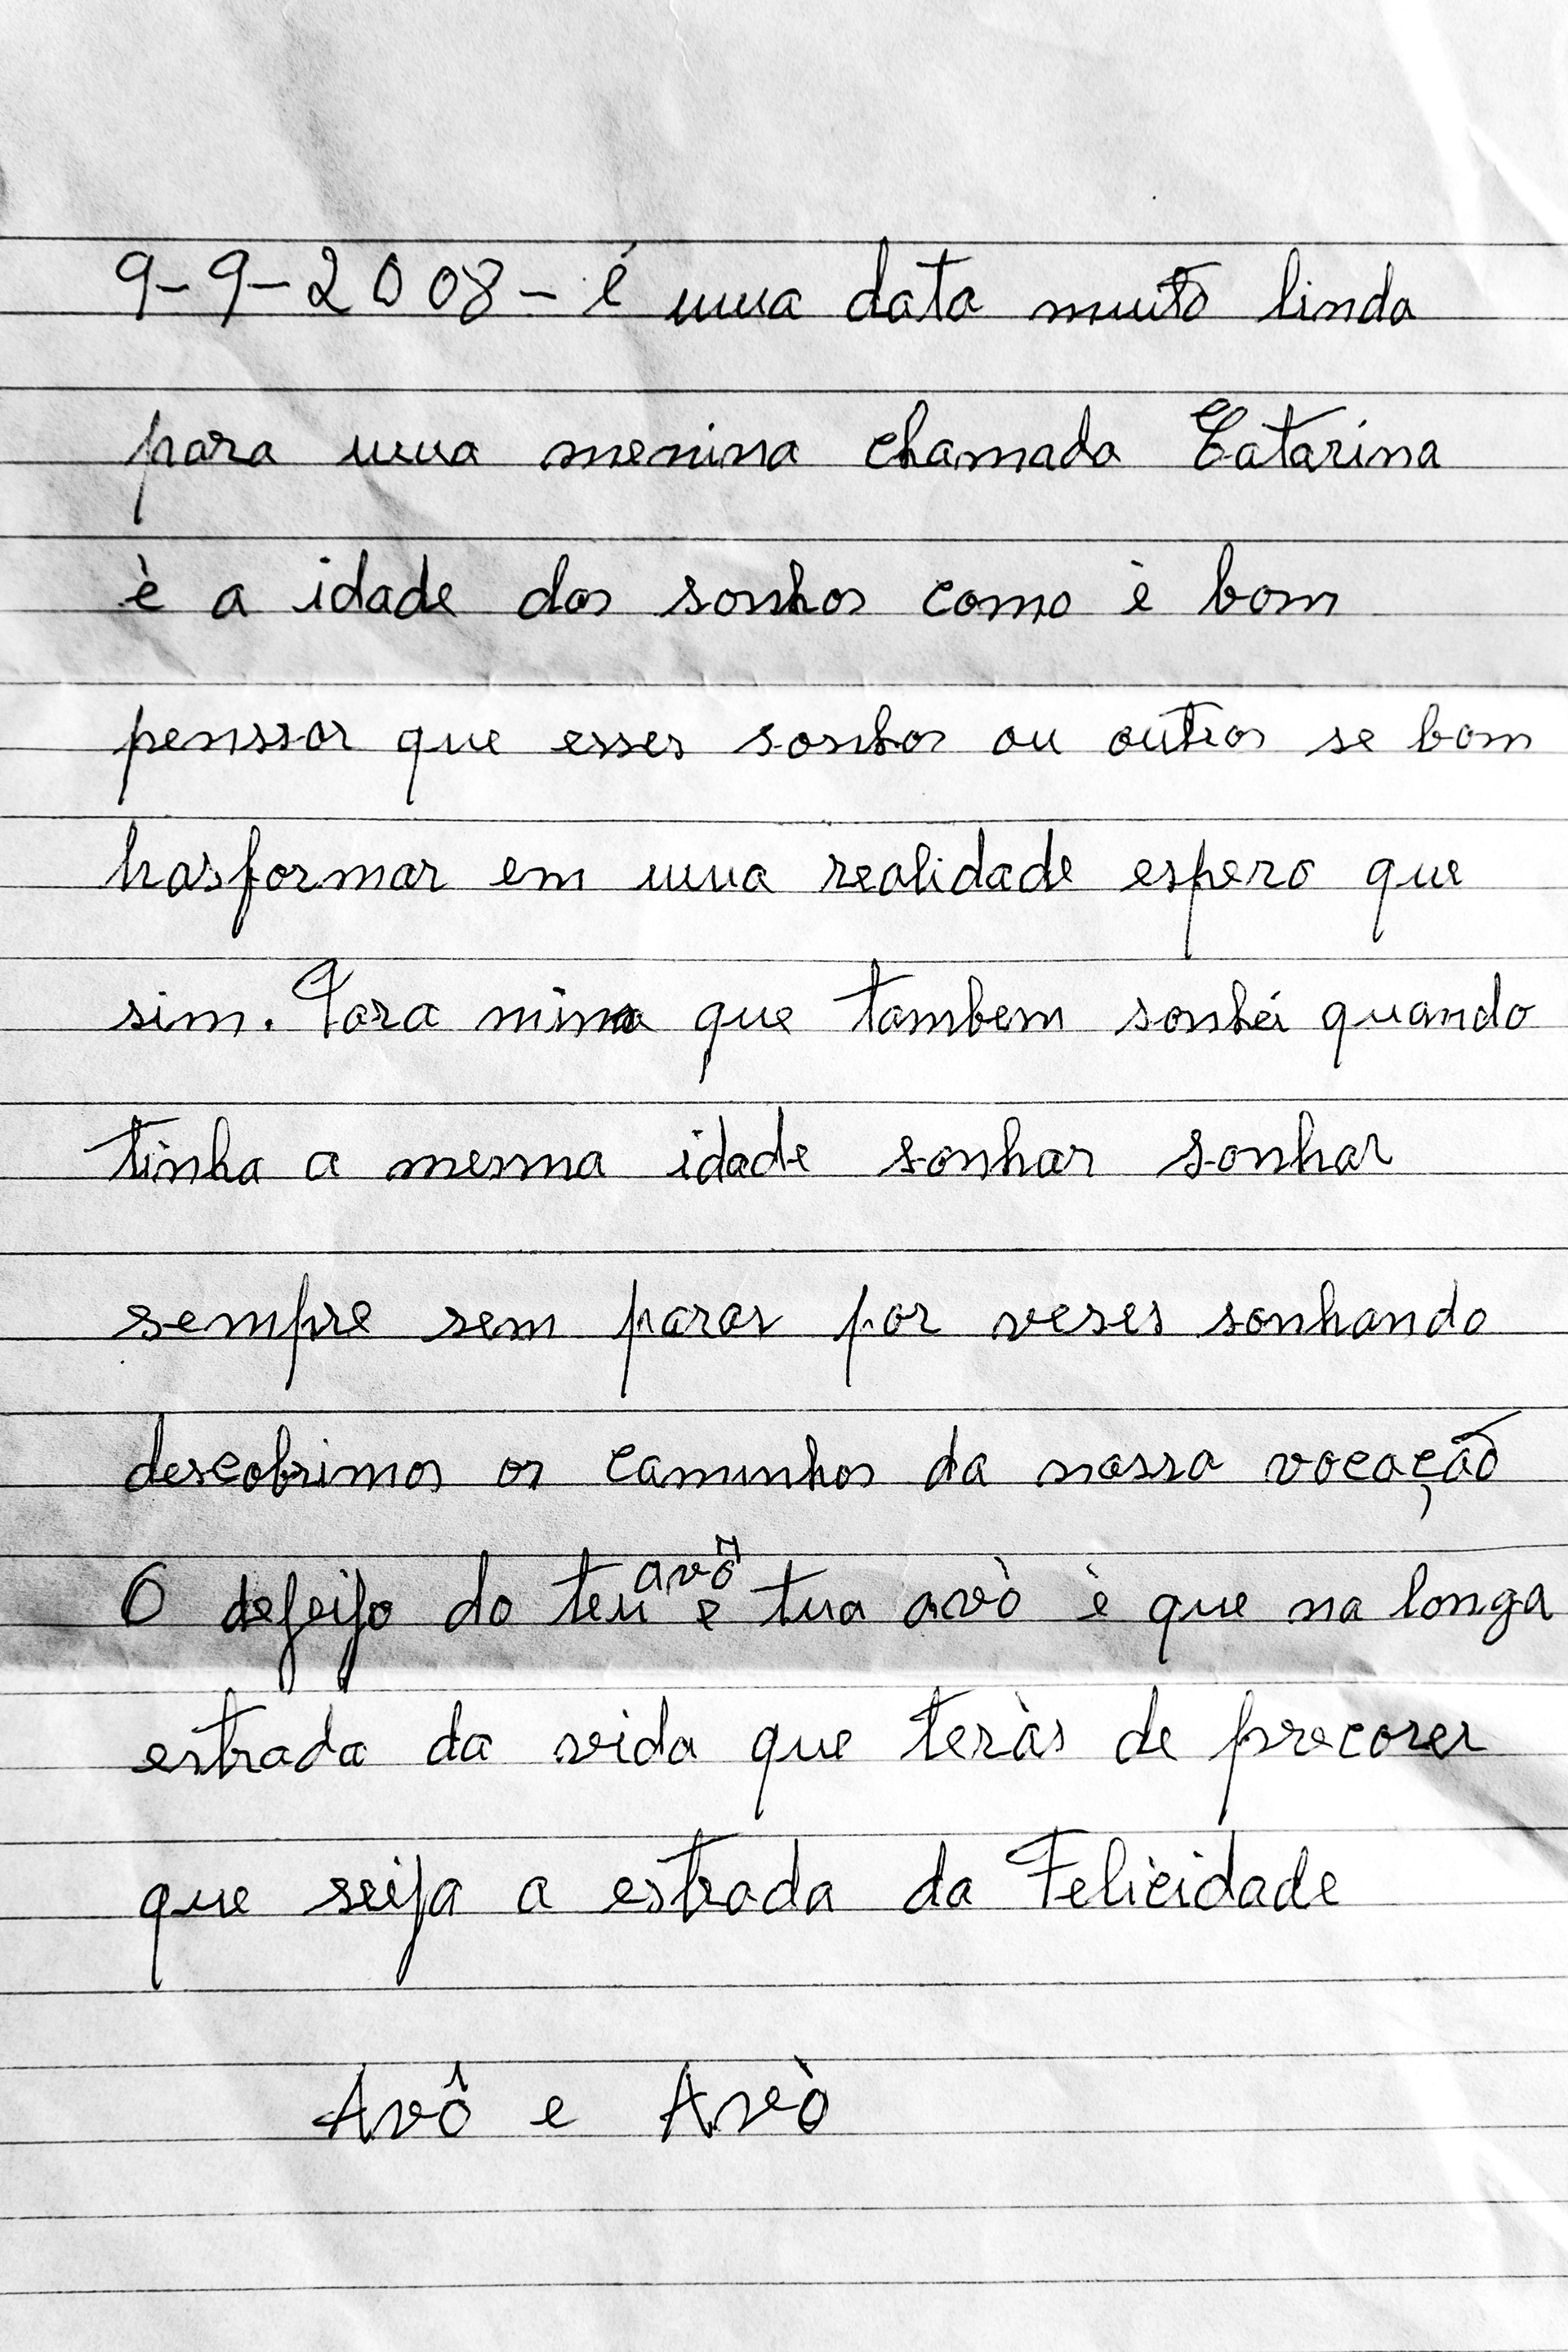 9-9-2008- é uma data muito linda
para uma menina chamada Catarina
è a idade dos sonhos como è bom
penssar que esses sonhos ou outros se bom
trasformar em uma realidade espero que
sim. Para mim que tambem sonhéi quando
tinha a mesma idade sonhar sonhar
sempre sem parar por veses sonhando
descobrimos os caminhos da nossa vocação
O defeijo do teu avô e tua avò è que na longa
estrada da vida que teràs de precorer
que seija a estrada da Felicidade
Avô e Avò